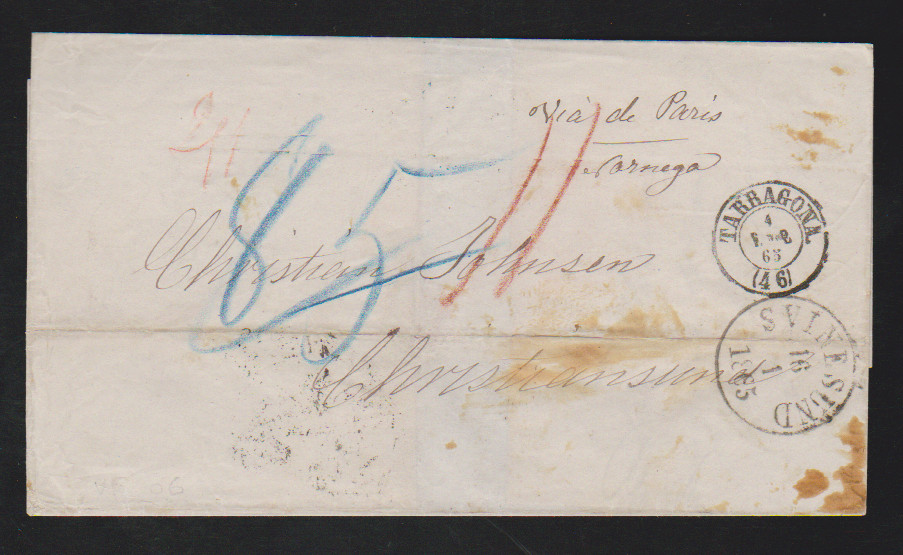 Via de Paris
Noruega
11
85
TARRAGONA.
4
65
(46)
Christian Johnsen
SVINESUND
16
1
1865
Christiansund